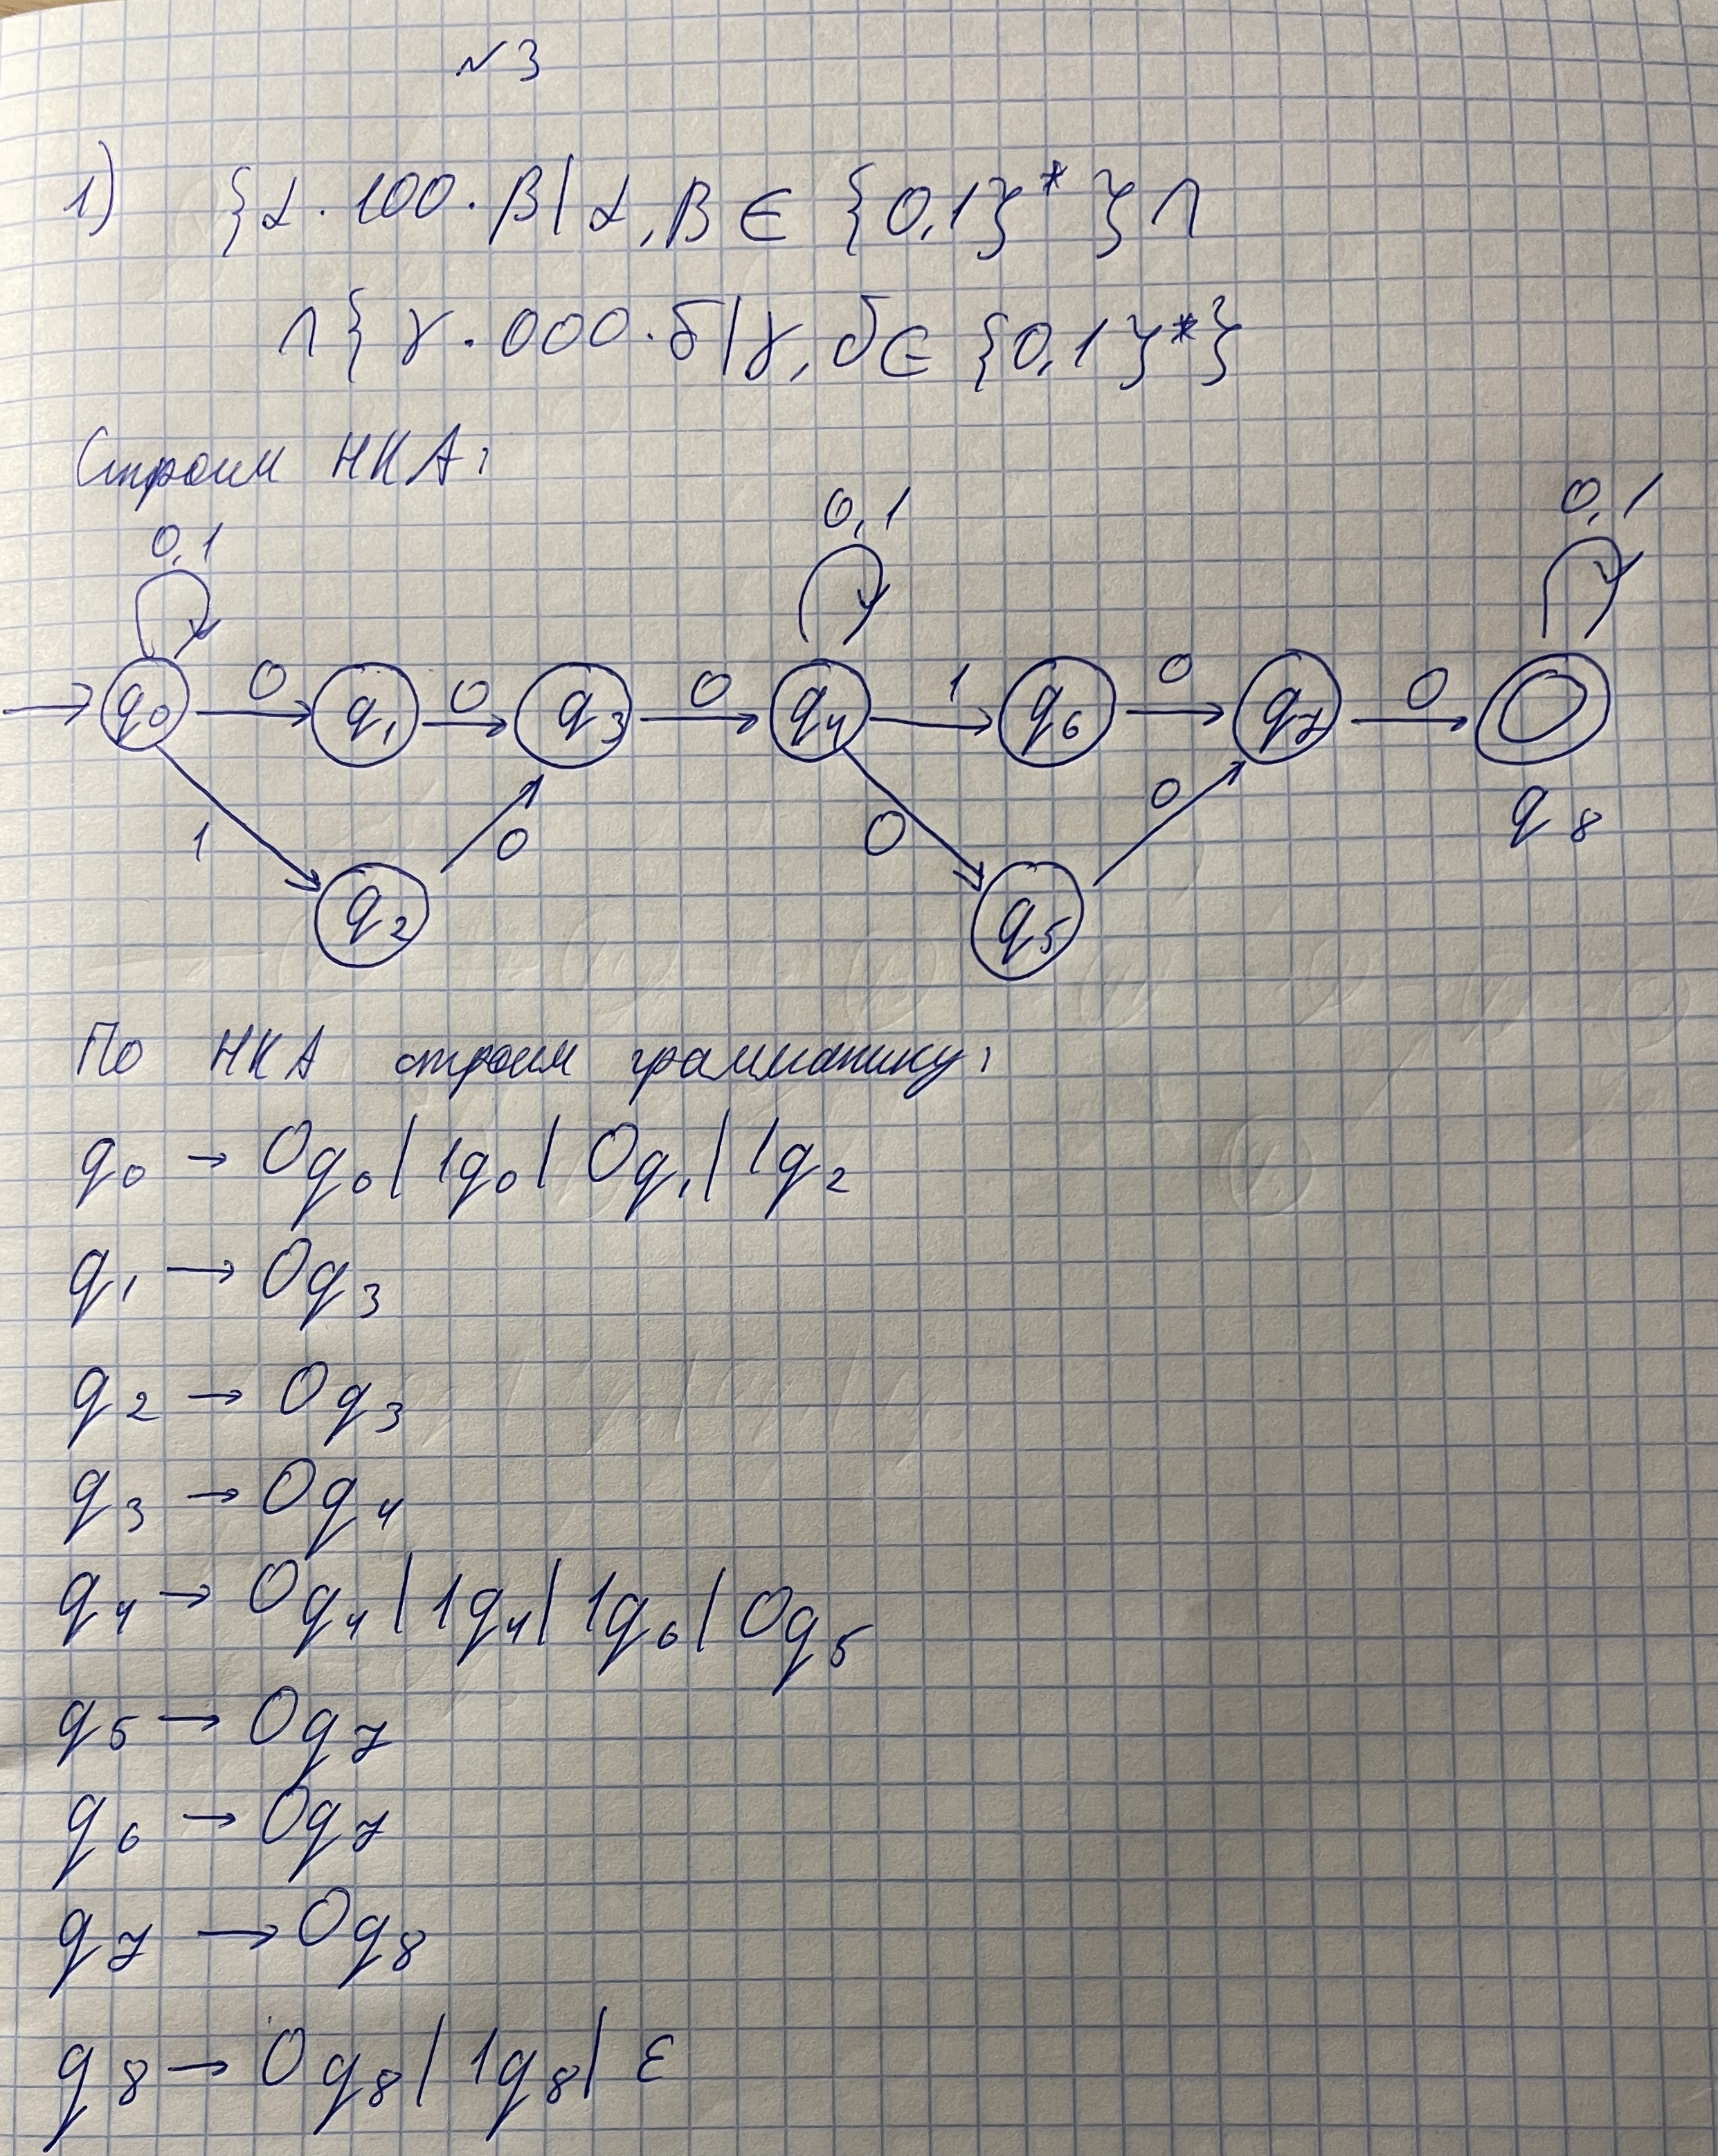 №3
1) {α · 100 · β | α, β ∈ {0,1}* } ∩
∩ { γ · 000 · δ | γ, δ ∈ {0,1}* }
Строим НКА:
0,1 0,1 0,1
q0 0 q1 0 q3 0 q4 1 q6 0 q7 0
1 0 0 0 q8
q2 q5
По НКА строим грамматику:
q0 → 0q0 | 1q0 | 0q1 | 1q2
q1 → 0q3
q2 → 0q3
q3 → 0q4
q4 → 0q4 | 1q4 | 1q6 | 0q5
q5 → 0q7
q6 → 0q7
q7 → 0q8
q8 → 0q8 | 1q8 | ε